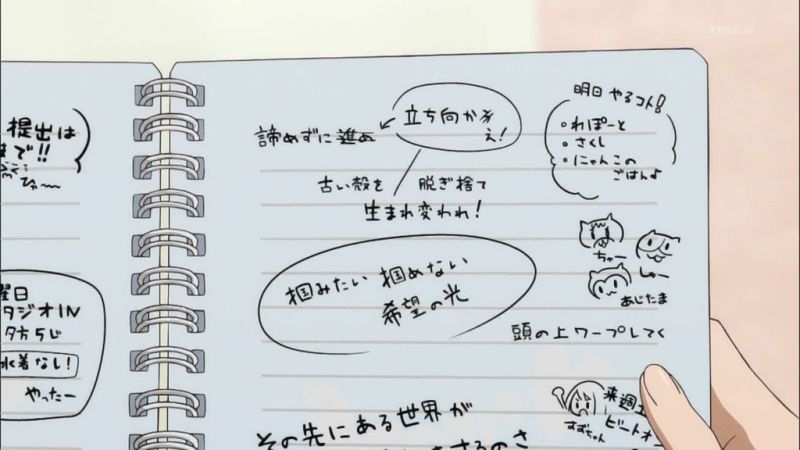 提出は
で!!
ひゃ〜
曜日
タジオIN
夕方5じ
水着なし!
やったー
立ち向かえ
え!
諦めずに進め
古い殻を 脱ぎ捨て
生まれ変われ!
掴みたい 掴めない
希望の光
その先にある世界が
をするのさ
明日 やるコト!
・れぽーと
・さくし
・にゃんこの
ごはんよ
ちゃー
しゅー
あじたま
頭の上ワープしてく
来週
ビートオ
すずちゃん